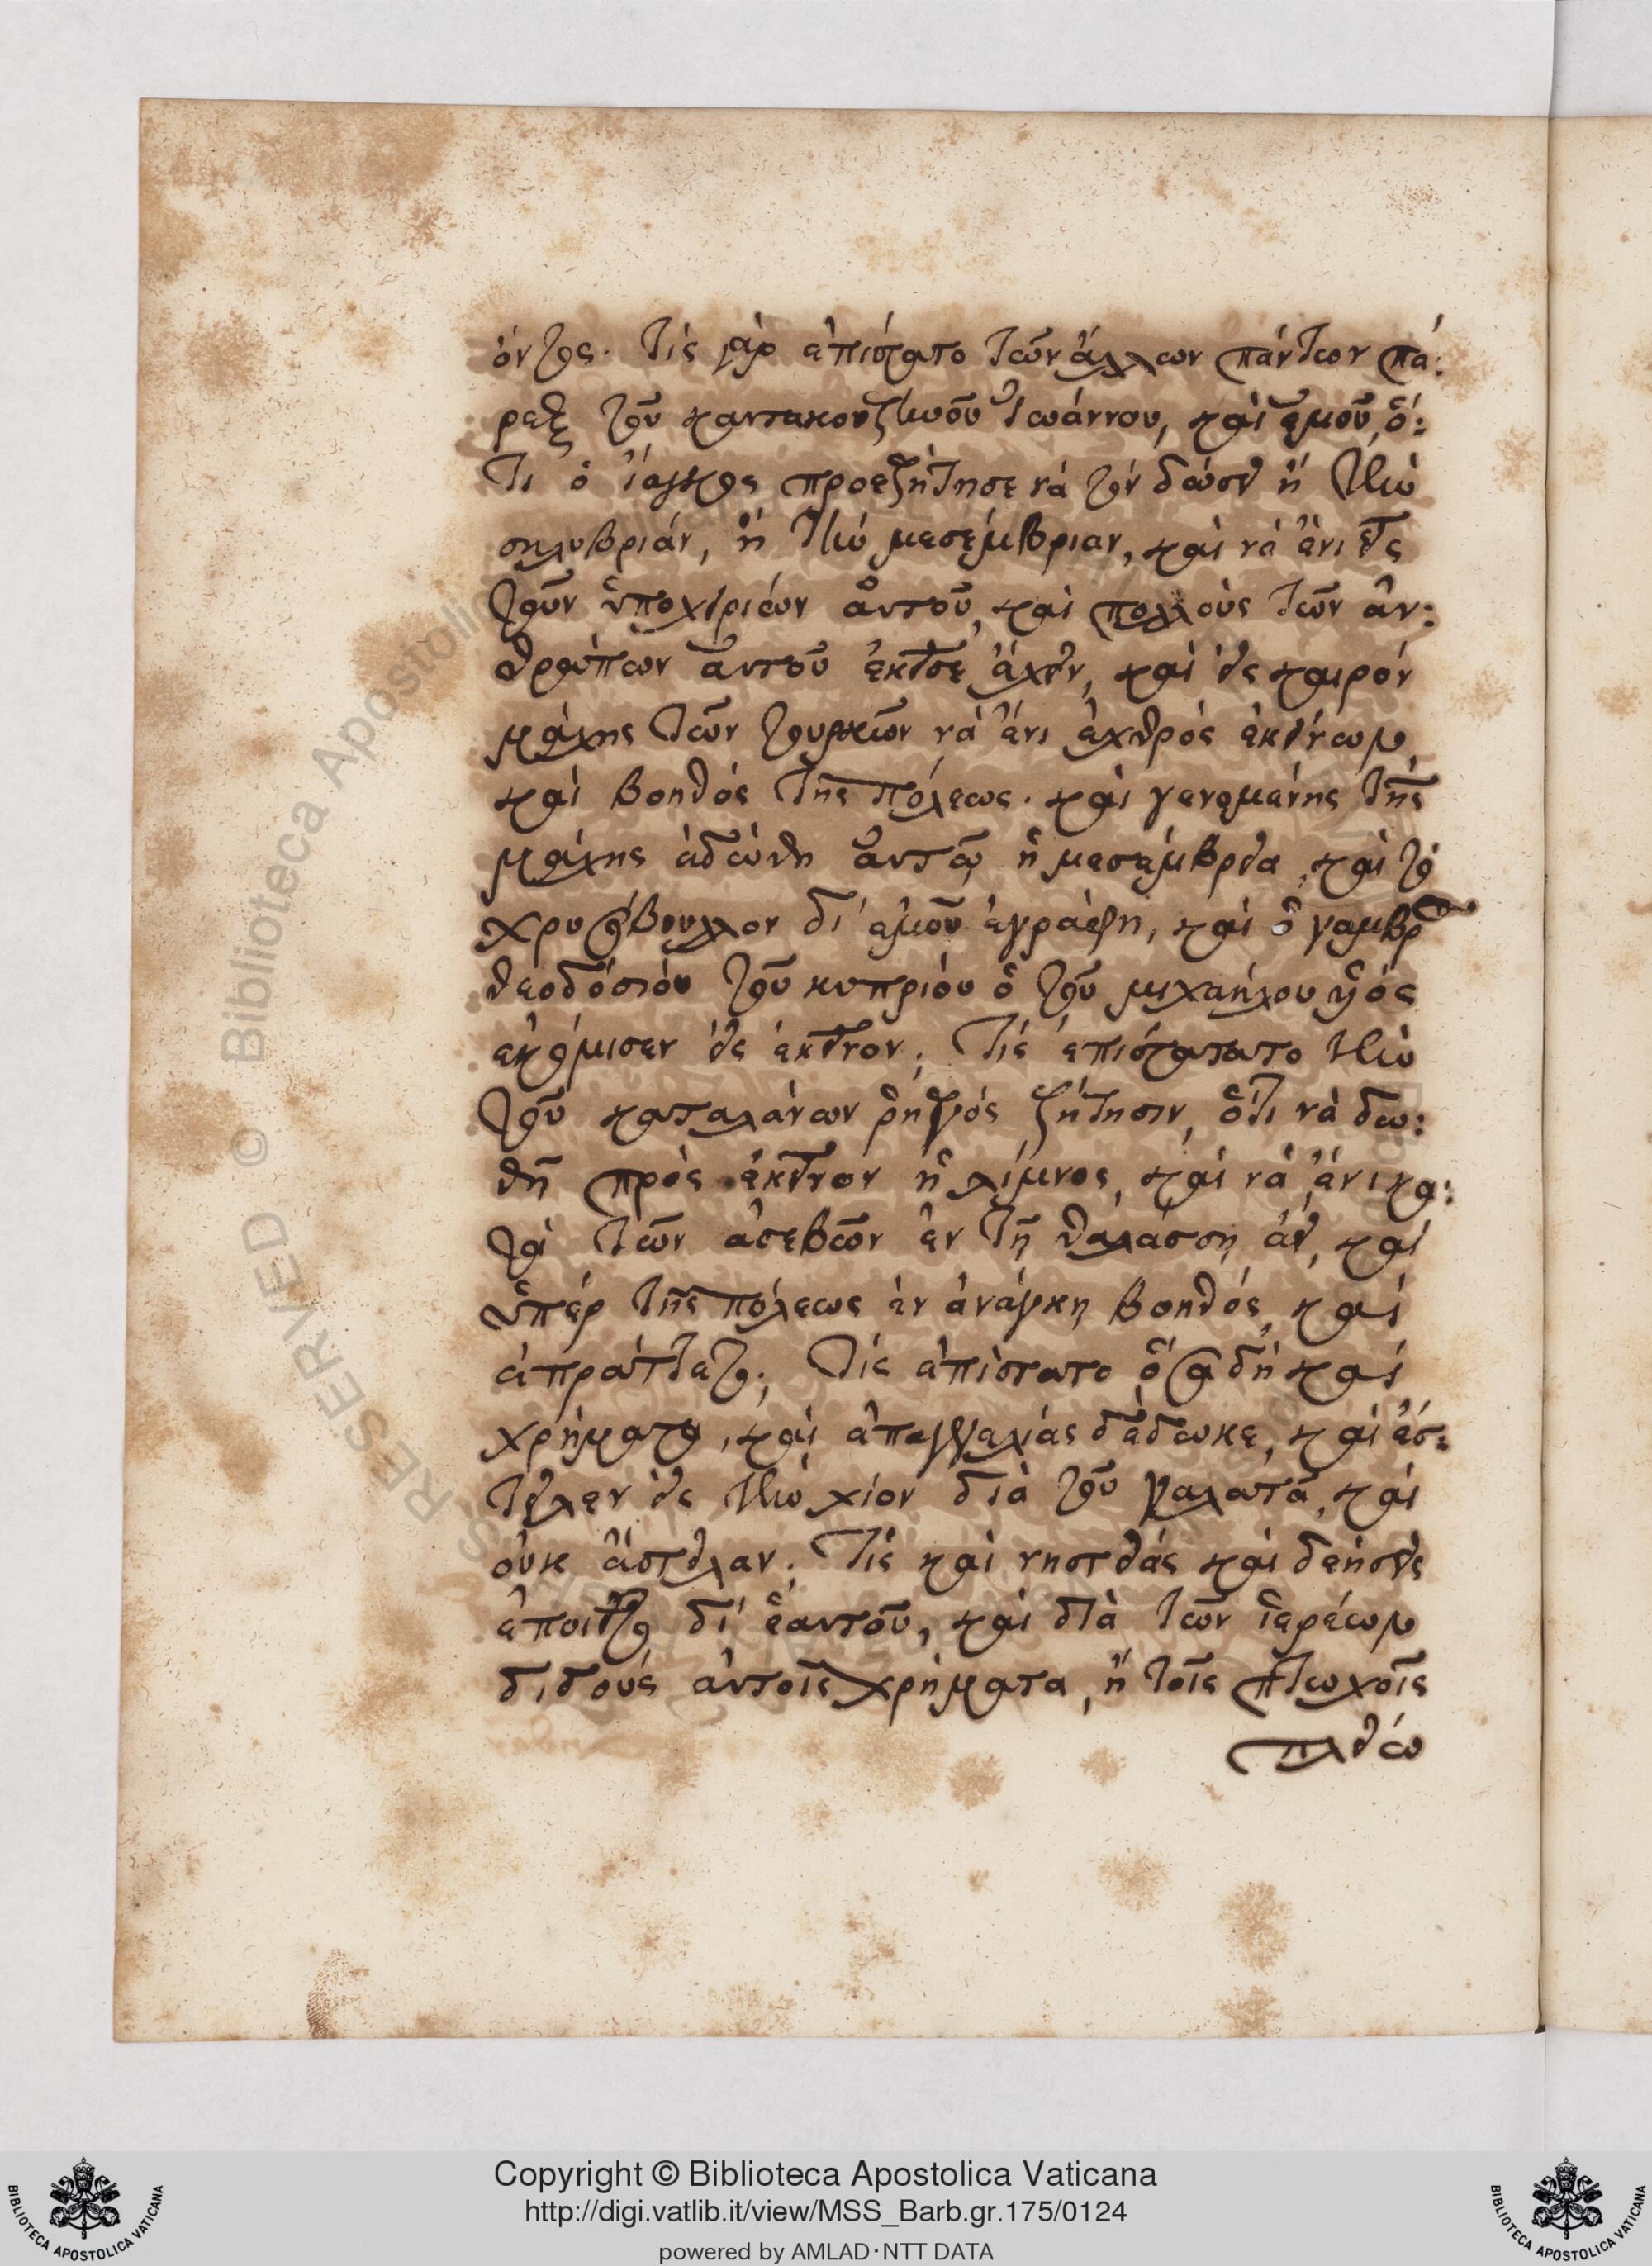 όντος. Τίς γὰρ ἐπίστατο τῶν ἄλλων πάντων πά:
ρεξ τοῦ καντακουζηνοῦ Ἰωάννου, καὶ ἐμοῦ, ὅ:
τι ὁ ἴαγκος προεζήτησε νά τὸν δώσει ἢ τὴν
σηλυβριάν, ἢ τὴν μεσέμβριαν, καὶ νά ἔνι εἷς
τοῦν ὑποχειρίων αὐτοῦ, καὶ πολλοὺς τῶν ἀν:
θρώπων αὐτοῦ ἐκεῖσε ἔχειν, καὶ εἰς καιρόν
μάχης τῶν τουρκῶν νὰ ἔνι ἐχθρὸς ἐκείνων,
καὶ βοηθός τῆς πόλεως. καὶ γενομένης τῆς
μάχης ἐδώθη αὐτῷ ἡ μεσέμβρεια, καὶ τὸ
χρυσόβουλλον δι' ἐμοῦ ἐγράφη, καὶ ὁ γαμβρ
θεοδόσιου τοῦ κυπρίου ὁ τοῦ μιχαήλου ὑός
ἐκόμισεν εἰς ἐκεῖνον; Τίς ἐπίστατατο τὴν
τοῦ καταλάνων ῥηγός ζήτησιν, ὅτι νὰ δω:
θῆ πρὸς ἐκεῖνον ἡ λίμνος, καὶ νὰ ἔνι κα:
τὰ τῶν ἀσεβῶν ἐν τῇ θαλάσσῃ ἀεί, καὶ
ὑπέρ τῆς πόλεως ἐν ἀνάγκῃ βοηθός, καὶ
ἐπράττετο; Τίς ἐπίστατο ὅσα δή καὶ
χρήματα, καὶ ἐπαγγελίας δέδωκε, καὶ ἔσ:
τειλεν εἰς τὴν χίον διὰ τοῦ γαλατᾶ, καὶ
οὐκ ἔστειλαν; Τίς καὶ νηστείας καὶ δεήσεις
ἐποιεῖτο δι' ἑαυτοῦ, καὶ διὰ τῶν ἱερέων
διδούς αὐτοῖς χρήματα, ἢ τοῖς πτωχοῖς
πλείω
Copyright © Biblioteca Apostolica Vaticana
http://digi.vatlib.it/view/MSS_Barb.gr.175/0124
powered by AMLAD·NTT DATA